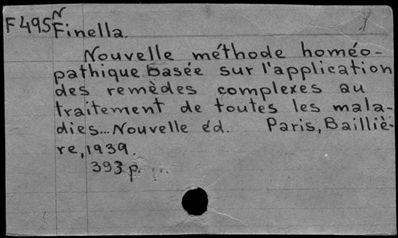 F495N
Finella.
Nouvelle méthode homéo-
pathique basée sur l'application
des remèdes complexes au
traitement de toutes les mala-
dies... Nouvelle éd. Paris, Bailliè-
re, 1939.
393 p.